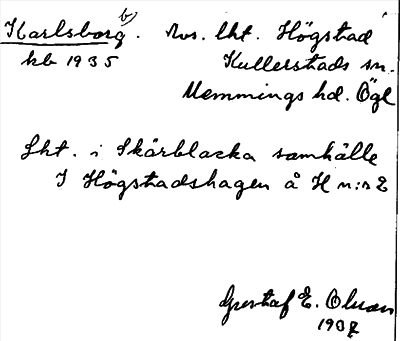 Karlsborg b). Avs. lht. Högstad
kb 1935 Kullerstads sn.
Memmings hd. Ögl
Lht. i Skärblacka samhälle
I Högstadshagen å H n:r 2
Gustaf E. Olsson